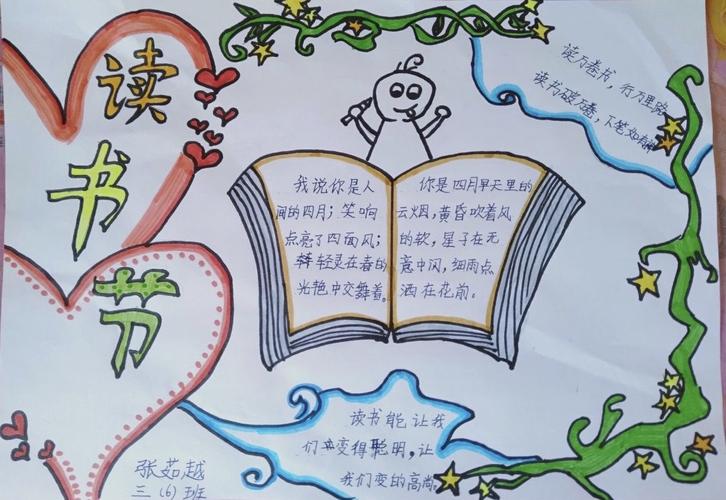 读
书
节
读万卷书，行万里路
读书破万卷，下笔如有神
我说你是人
间的四月；笑响
点亮了四面风；
轻灵在春的
光艳中交舞着。
你是四月早天里的
云烟，黄昏吹着风
的软，星子在无
意中风，细雨点
洒在花前。
读书能让我
们变得聪明，让
我们变的高尚
张茹越
三（6）班